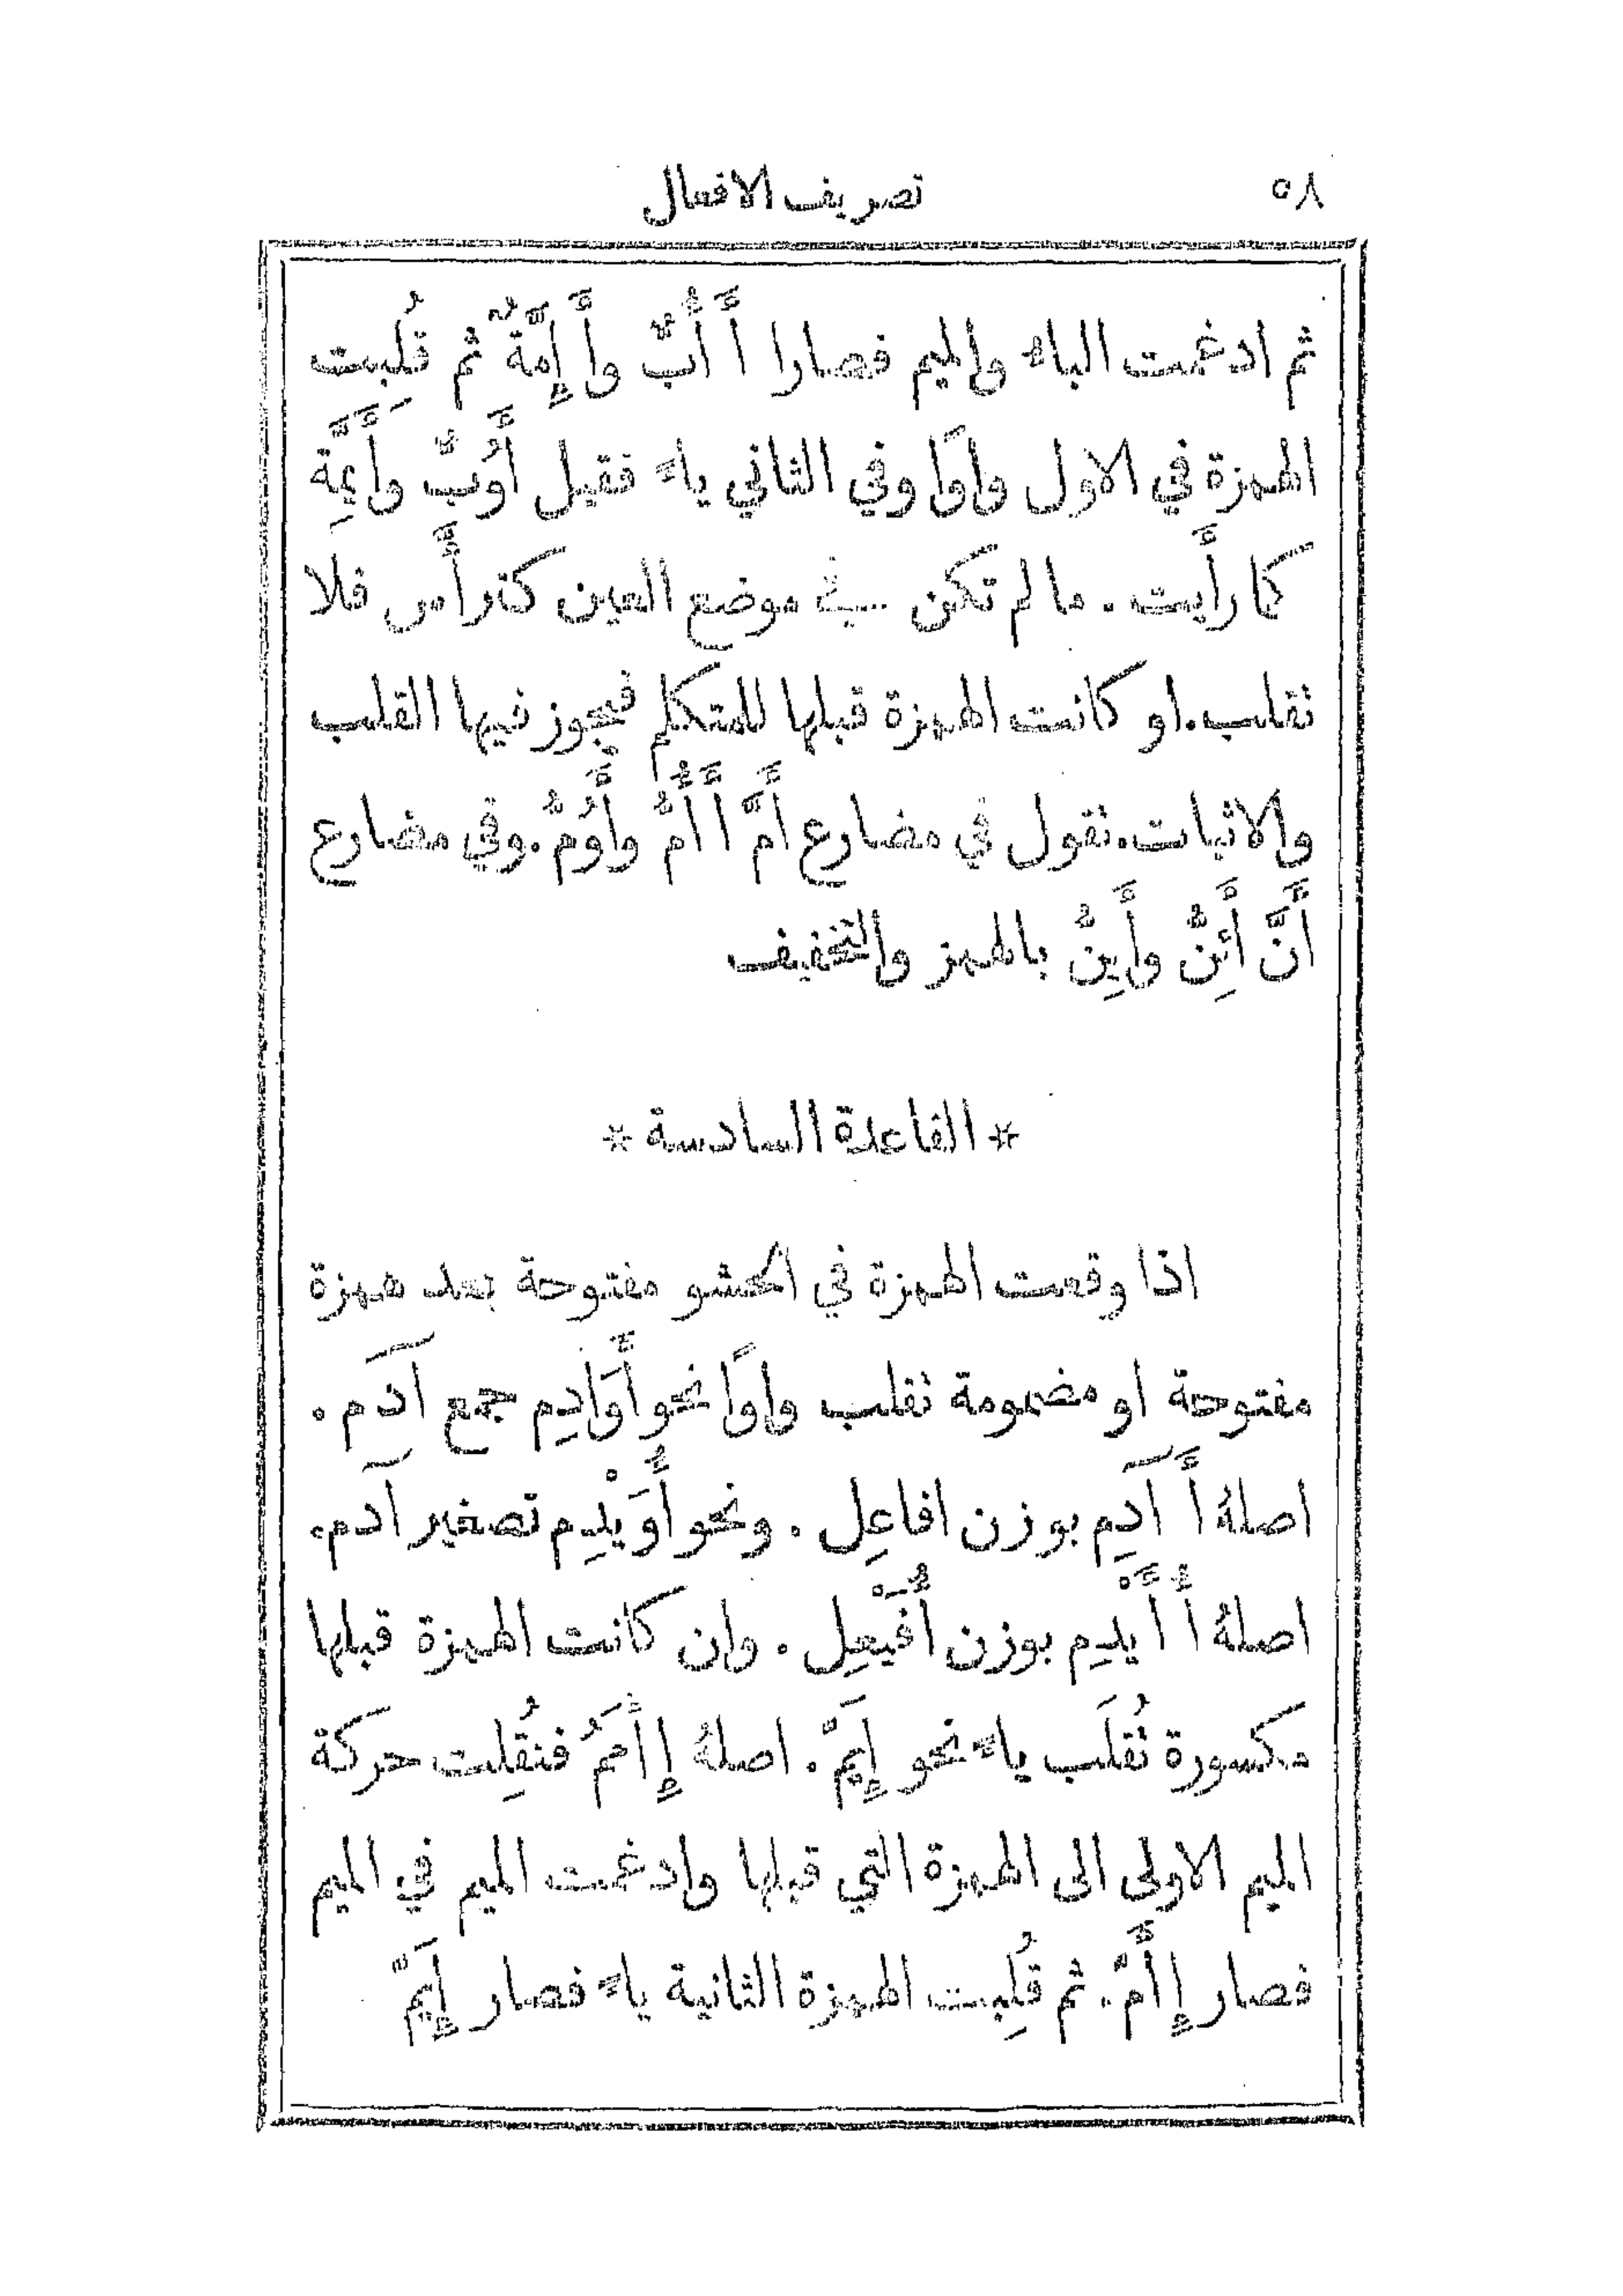 ٥٨ تصريف الافعال
ثم ادغمت الباء والميم فصارا أَ أُبٌّ وأَ إِمَّةٌ ثم قُلِبت
الهمزة في الاول واوًا وفي الثاني ياءً فقيل أَوُبٌّ وأَيِمَّة
كما رأَيت. ما لم تكن في موضع العين كترأَّس فلا
تقلب. او كانت الهمزة قبلها للمتكلم فيجوز فيها القلب
والاثبات. تقول في مضارع أَمَّ أَ أُمُّ وأَوُمُّ. وفي مضارع
أَنَّ أَئِنُّ وأَيِنُّ بالهمز والتخفيف
* القاعدة السادسة *
اذا وقعت الهمزة في الحشو مفتوحة بعد همزة
مفتوحة او مضمومة تقلب واوًا نحو أَوَادِم جمع آدَم.
اصلهُ أَ آدِم بوزن افاعِل. ونحو أُوَيْدِم تصغير آدم.
اصلهُ أُ أَيْدِم بوزن أُفَيْعِل. وان كانت الهمزة قبلها
مكسورة تُقلَب ياءً نحو إِيَمٌّ. اصلهُ إِ أْمَمُ فنُقِلت حركة
الميم الاولى الى الهمزة التي قبلها وادغمت الميم في الميم
فصار إِ أَمٌّ. ثم قُلِبت الهمزة الثانية ياءً فصار إِيَمٌّ